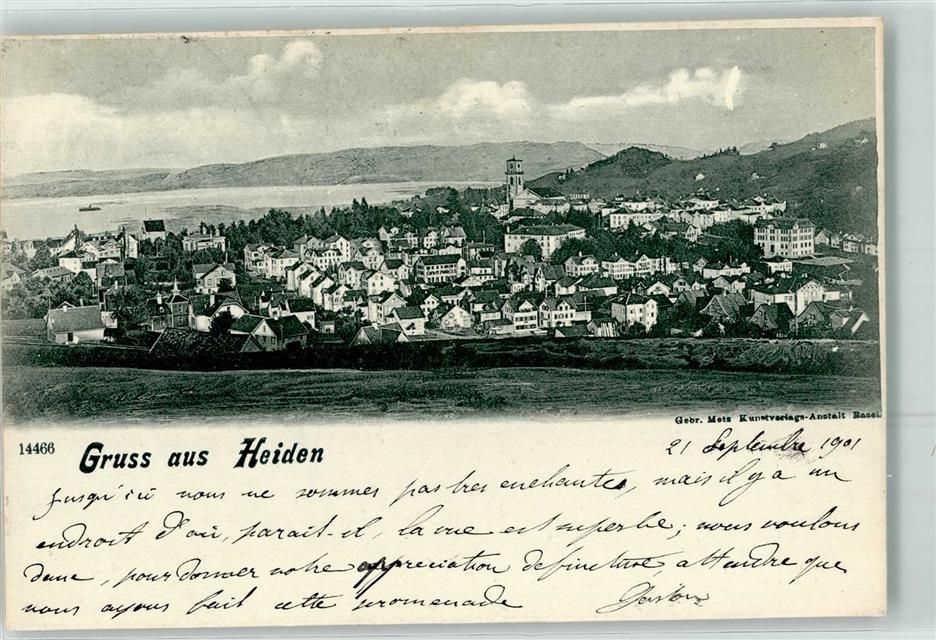 Gebr. Metz Kunstverlags-Anstalt Basel
14466
Gruss aus Heiden
21 Septembre 1901
Jusqu'ici nous ne sommes pas très enchantés, mais il y a un
endroit d'où, parait-il, la vue est superbe; nous voulons
donc, pour donner notre appreciation definitive, attendre que
nous ayons fait cette promenade Gaston